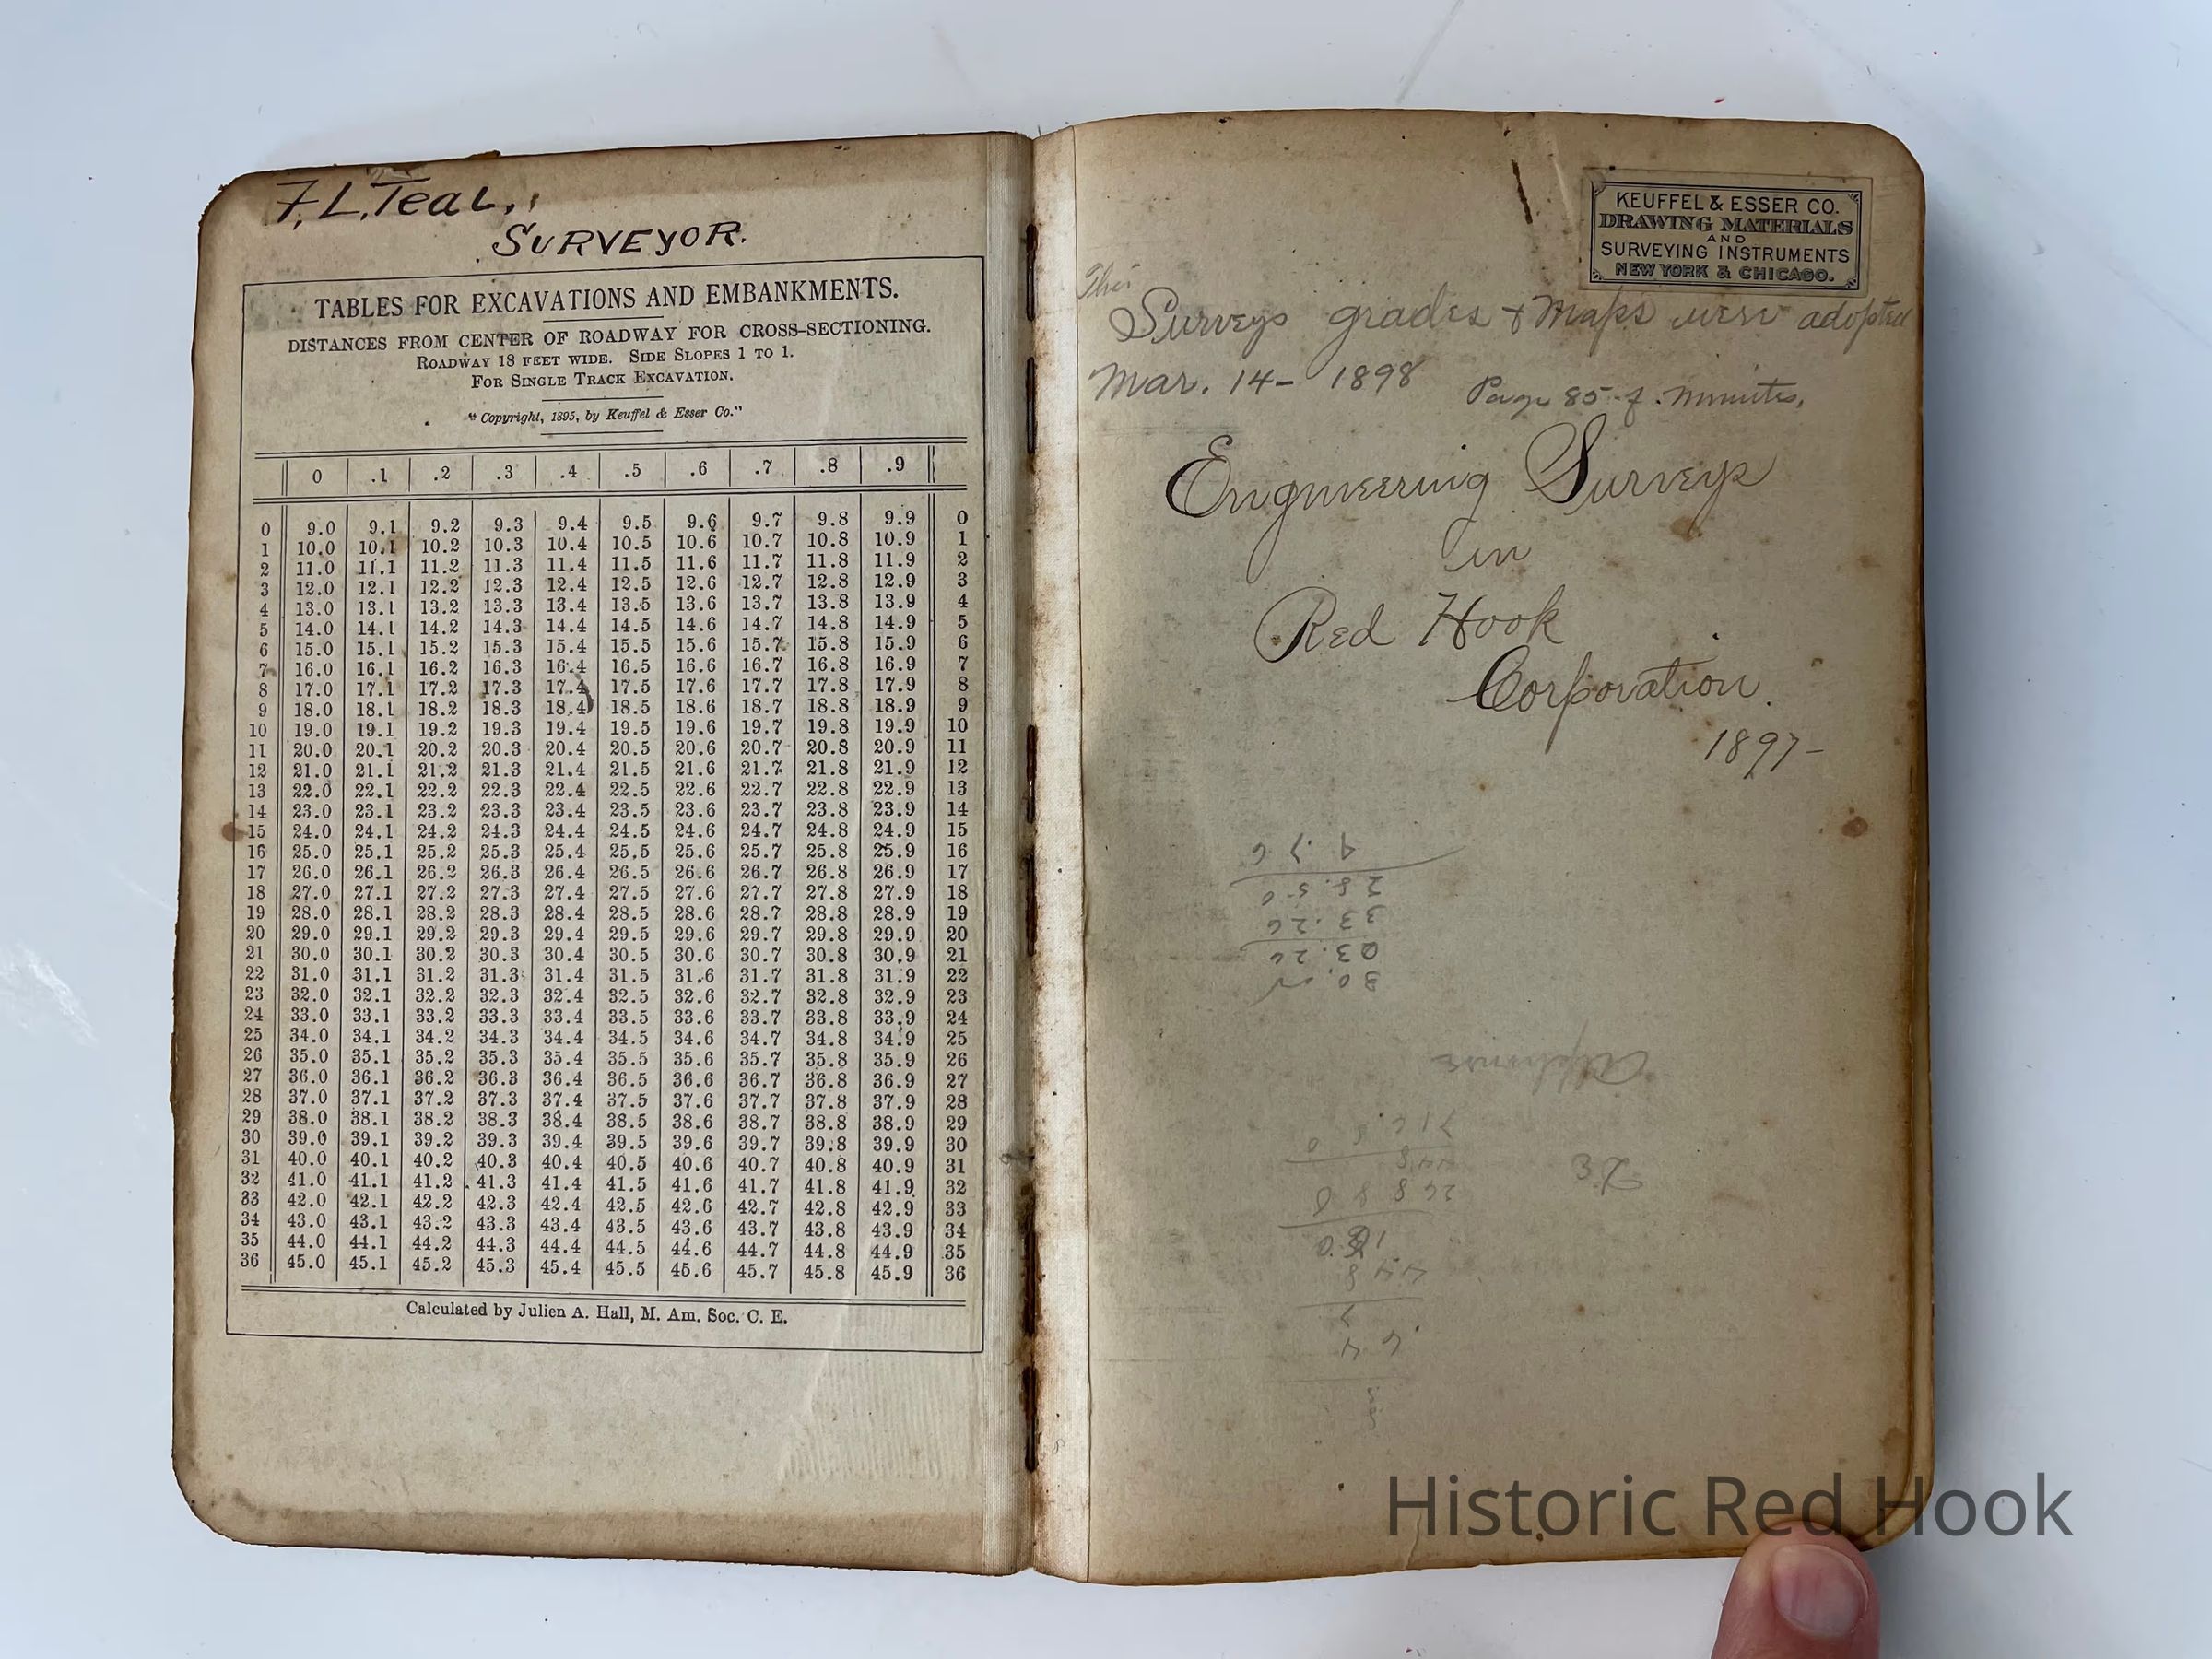 F. L. Teal,
SURVEYOR.
TABLES FOR EXCAVATIONS AND EMBANKMENTS.
DISTANCES FROM CENTER OF ROADWAY FOR CROSS-SECTIONING.
ROADWAY 18 FEET WIDE. SIDE SLOPES 1 TO 1.
FOR SINGLE TRACK EXCAVATION.
"Copyright, 1895, by Keuffel & Esser Co."
0 .1 .2 .3 .4 .5 .6 .7 .8 .9
0 9.0 9.1 9.2 9.3 9.4 9.5 9.6 9.7 9.8 9.9 0
1 10.0 10.1 10.2 10.3 10.4 10.5 10.6 10.7 10.8 10.9 1
2 11.0 11.1 11.2 11.3 11.4 11.5 11.6 11.7 11.8 11.9 2
3 12.0 12.1 12.2 12.3 12.4 12.5 12.6 12.7 12.8 12.9 3
4 13.0 13.1 13.2 13.3 13.4 13.5 13.6 13.7 13.8 13.9 4
5 14.0 14.1 14.2 14.3 14.4 14.5 14.6 14.7 14.8 14.9 5
6 15.0 15.1 15.2 15.3 15.4 15.5 15.6 15.7 15.8 15.9 6
7 16.0 16.1 16.2 16.3 16.4 16.5 16.6 16.7 16.8 16.9 7
8 17.0 17.1 17.2 17.3 17.4 17.5 17.6 17.7 17.8 17.9 8
9 18.0 18.1 18.2 18.3 18.4 18.5 18.6 18.7 18.8 18.9 9
10 19.0 19.1 19.2 19.3 19.4 19.5 19.6 19.7 19.8 19.9 10
11 20.0 20.1 20.2 20.3 20.4 20.5 20.6 20.7 20.8 20.9 11
12 21.0 21.1 21.2 21.3 21.4 21.5 21.6 21.7 21.8 21.9 12
13 22.0 22.1 22.2 22.3 22.4 22.5 22.6 22.7 22.8 22.9 13
14 23.0 23.1 23.2 23.3 23.4 23.5 23.6 23.7 23.8 23.9 14
15 24.0 24.1 24.2 24.3 24.4 24.5 24.6 24.7 24.8 24.9 15
16 25.0 25.1 25.2 25.3 25.4 25.5 25.6 25.7 25.8 25.9 16
17 26.0 26.1 26.2 26.3 26.4 26.5 26.6 26.7 26.8 26.9 17
18 27.0 27.1 27.2 27.3 27.4 27.5 27.6 27.7 27.8 27.9 18
19 28.0 28.1 28.2 28.3 28.4 28.5 28.6 28.7 28.8 28.9 19
20 29.0 29.1 29.2 29.3 29.4 29.5 29.6 29.7 29.8 29.9 20
21 30.0 30.1 30.2 30.3 30.4 30.5 30.6 30.7 30.8 30.9 21
22 31.0 31.1 31.2 31.3 31.4 31.5 31.6 31.7 31.8 31.9 22
23 32.0 32.1 32.2 32.3 32.4 32.5 32.6 32.7 32.8 32.9 23
24 33.0 33.1 33.2 33.3 33.4 33.5 33.6 33.7 33.8 33.9 24
25 34.0 34.1 34.2 34.3 34.4 34.5 34.6 34.7 34.8 34.9 25
26 35.0 35.1 35.2 35.3 35.4 35.5 35.6 35.7 35.8 35.9 26
27 36.0 36.1 36.2 36.3 36.4 36.5 36.6 36.7 36.8 36.9 27
28 37.0 37.1 37.2 37.3 37.4 37.5 37.6 37.7 37.8 37.9 28
29 38.0 38.1 38.2 38.3 38.4 38.5 38.6 38.7 38.8 38.9 29
30 39.0 39.1 39.2 39.3 39.4 39.5 39.6 39.7 39.8 39.9 30
31 40.0 40.1 40.2 40.3 40.4 40.5 40.6 40.7 40.8 40.9 31
32 41.0 41.1 41.2 41.3 41.4 41.5 41.6 41.7 41.8 41.9 32
33 42.0 42.1 42.2 42.3 42.4 42.5 42.6 42.7 42.8 42.9 33
34 43.0 43.1 43.2 43.3 43.4 43.5 43.6 43.7 43.8 43.9 34
35 44.0 44.1 44.2 44.3 44.4 44.5 44.6 44.7 44.8 44.9 35
36 45.0 45.1 45.2 45.3 45.4 45.5 45.6 45.7 45.8 45.9 36
Calculated by Julien A. Hall, M. Am. Soc. C. E.
KEUFFEL & ESSER CO.
DRAWING MATERIALS
AND
SURVEYING INSTRUMENTS
NEW YORK & CHICAGO.
Surveys grades & Maps were adopted
Mar. 14- 1898 Page 85 of minutes,
Engineering Surveys
in
Red Hook
Corporation.
1897-
4.76
28.50
33.26
03.26
Historic Red Hook